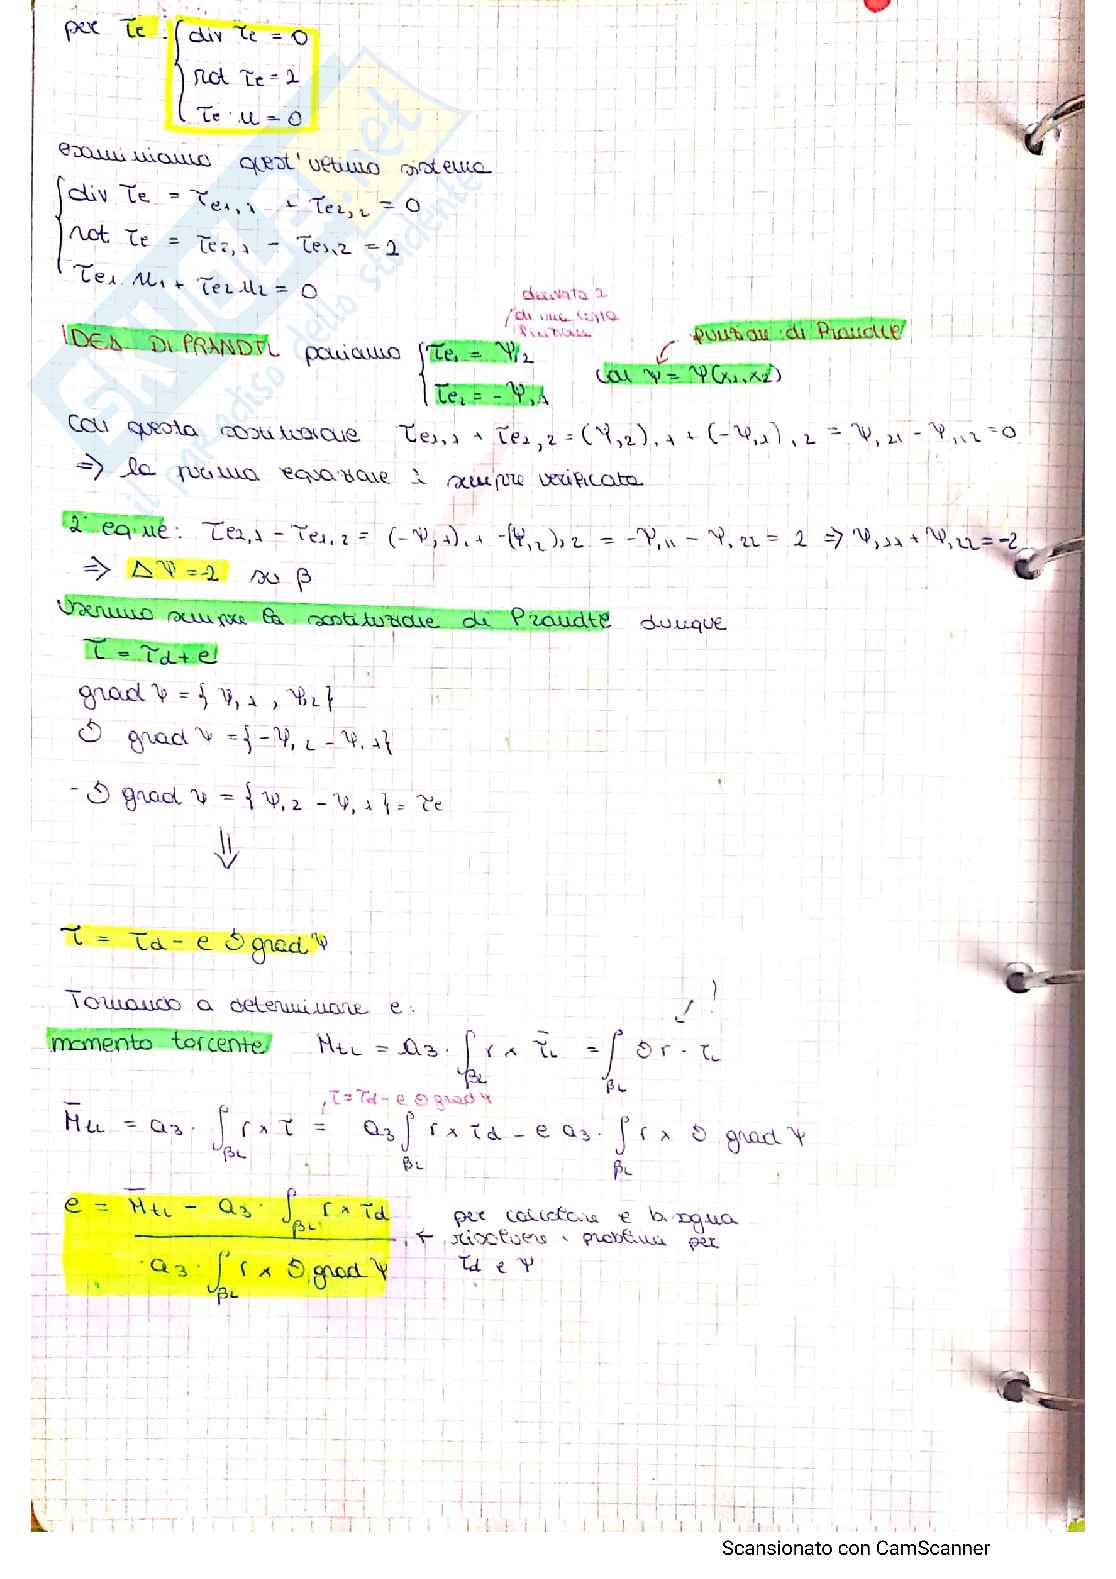 per τe : { div τe = 0
rot τe = 2
τe · u = 0
esaminiamo quest'ultimo sistema
{ div τe = τe1,1 + τe2,2 = 0
rot τe = τe2,1 - τe1,2 = 2
τe1 u1 + τe2 u2 = 0
derivata 2
di una certa
funzione
IDEA DI PRANDTL poniamo { τe1 = Ψ,2
funzion di Prandtl
τe2 = - Ψ,1
con Ψ = Ψ(x1, x2)
con questa sostituzione τe1,1 + τe2,2 = (Ψ,2),1 + (-Ψ,1),2 = Ψ,21 - Ψ,12 = 0
⇒ la prima equazione è sempre verificata
2° eq.ne: τe2,1 - τe1,2 = (-Ψ,1),1 -(Ψ,2),2 = -Ψ,11 - Ψ,22 = 2 ⇒ Ψ,11 + Ψ,22 = -2
⇒ ΔΨ = -2 su β
Useremo sempre la sostituzione di Prandtl dunque
τ = τd + e
grad Ψ = { Ψ,1 , Ψ,2 }
↺ grad Ψ = {-Ψ,2 - Ψ,1}
- ↺ grad Ψ = { Ψ,2 - Ψ,1 } = τe
⇓
τ = τd - e ↺ grad Ψ
Tornando a determinare e:
!
momento torcente MtL = a3 · ∫βL r × τ̄L = ∫βL ↺ r · τL
τ = τd - e ↺ grad Ψ
M̄tL = a3 · ∫βL r × τ = a3 ∫βL r × τd - e a3 · ∫βL r × ↺ grad Ψ
e = M̄tL - a3 · ∫βL r × τd / - a3 · ∫βL r × ↺ grad Ψ
per calcolare e bisogna
risolvere i problemi per
τd e Ψ
SKUOLA.net
il paradiso dello studente
Scansionato con CamScanner